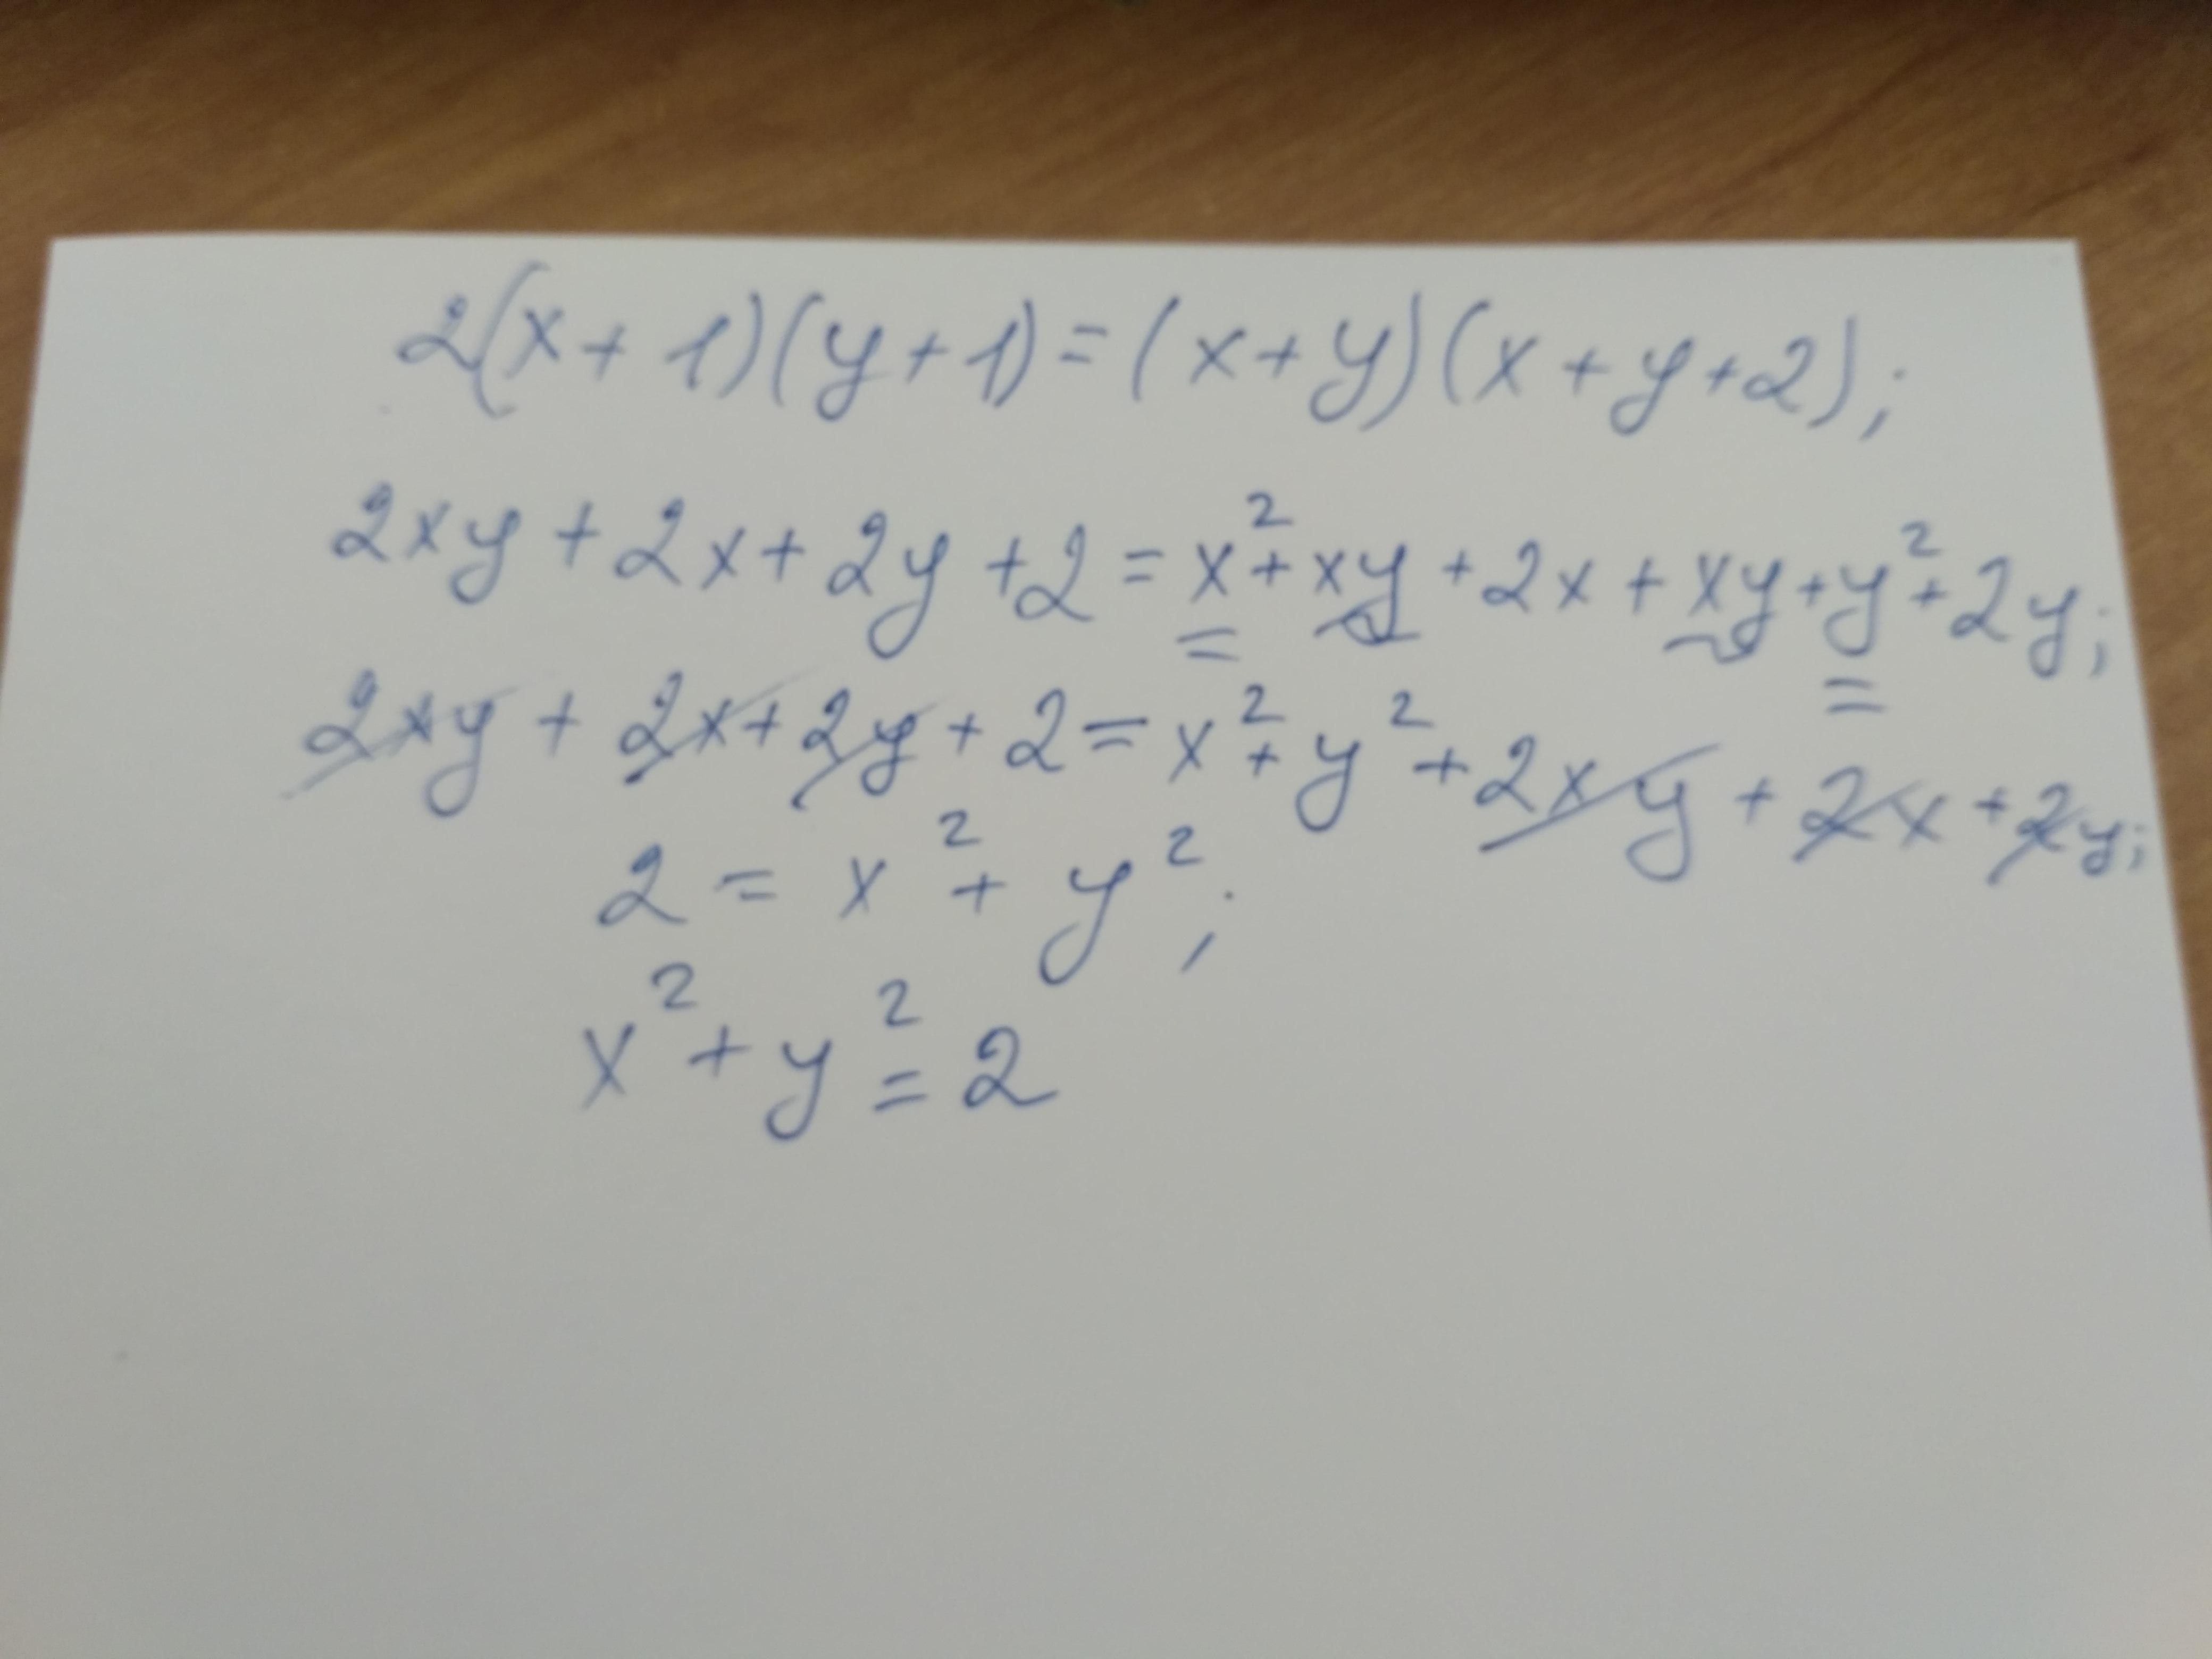 2(x+1)(y+1)=(x+y)(x+y+2);
2xy+2x+2y+2=x²+xy+2x+xy+y²+2y;
2xy+2x+2y+2=x²+y²+2xy+2x+2y;
2=x²+y²;
x²+y²=2